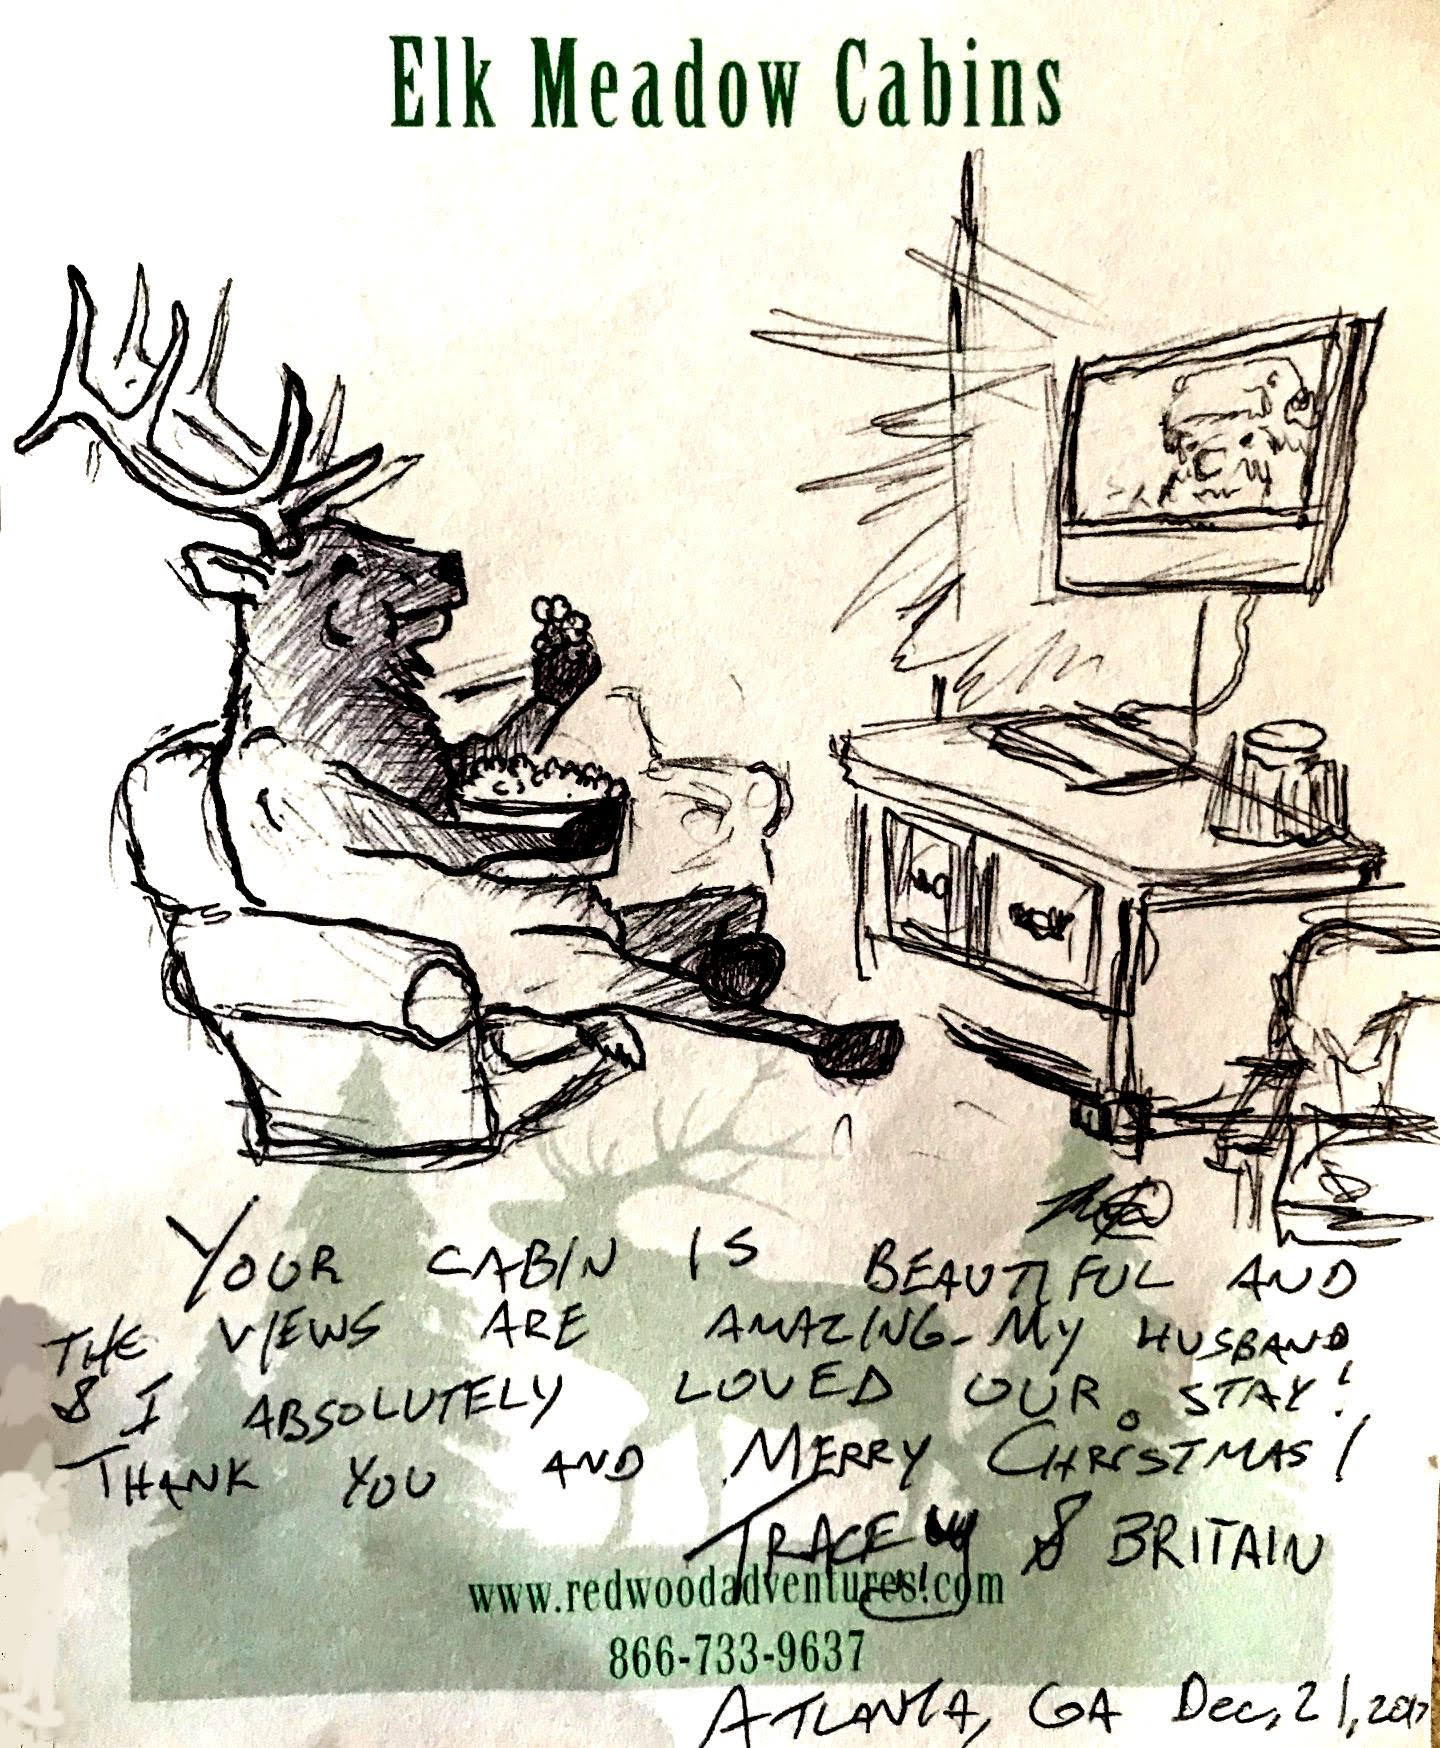 Elk Meadow Cabins
YOUR CABIN IS BEAUTIFUL AND
THE VIEWS ARE AMAZING. MY HUSBAND
& I ABSOLUTELY LOVED OUR STAY!
THANK YOU AND MERRY CHRISTMAS!
TRACEY & BRITAIN
www.redwoodadventures.com
866-733-9637
ATLANTA, GA Dec, 21, 2017